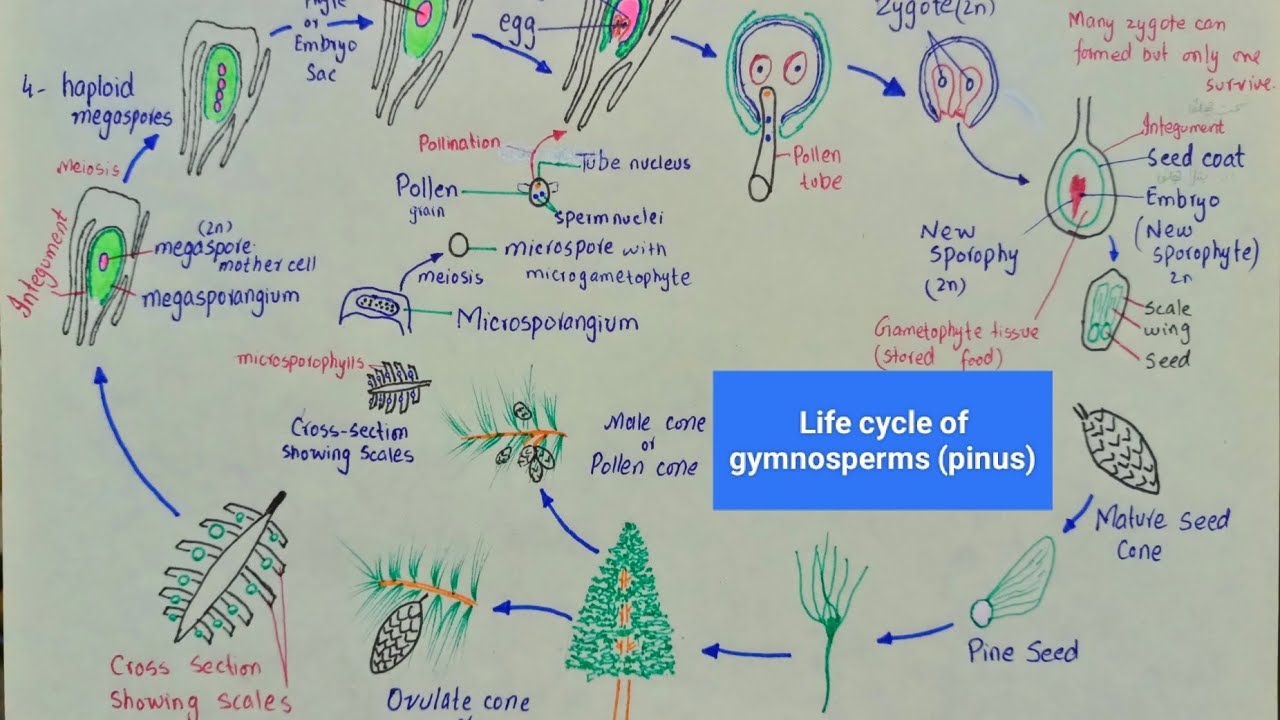 or
Embryo
Sac
egg
Zygote (2n)
Many zygote can
formed but only one
survive.
4- haploid
megaspores
Meiosis
Integument
(2n)
megaspore
mother cell
megasporangium
Pollination
Tube nucleus
Pollen
grain
spermnuclei
microspore with
microgametophyte
meiosis
Microsporangium
Pollen
tube
Integument
Seed coat
Embryo
(New
sporophyte)
2n
New
Sporophy
(2n)
Scale
wing
Seed
Gametophyte tissue
(stored food)
microsporophylls
Cross-section
showing scales
Male cone
or
Pollen cone
Life cycle of
gymnosperms (pinus)
Mature seed
Cone
Pine Seed
Cross section
Showing scales
Ovulate cone